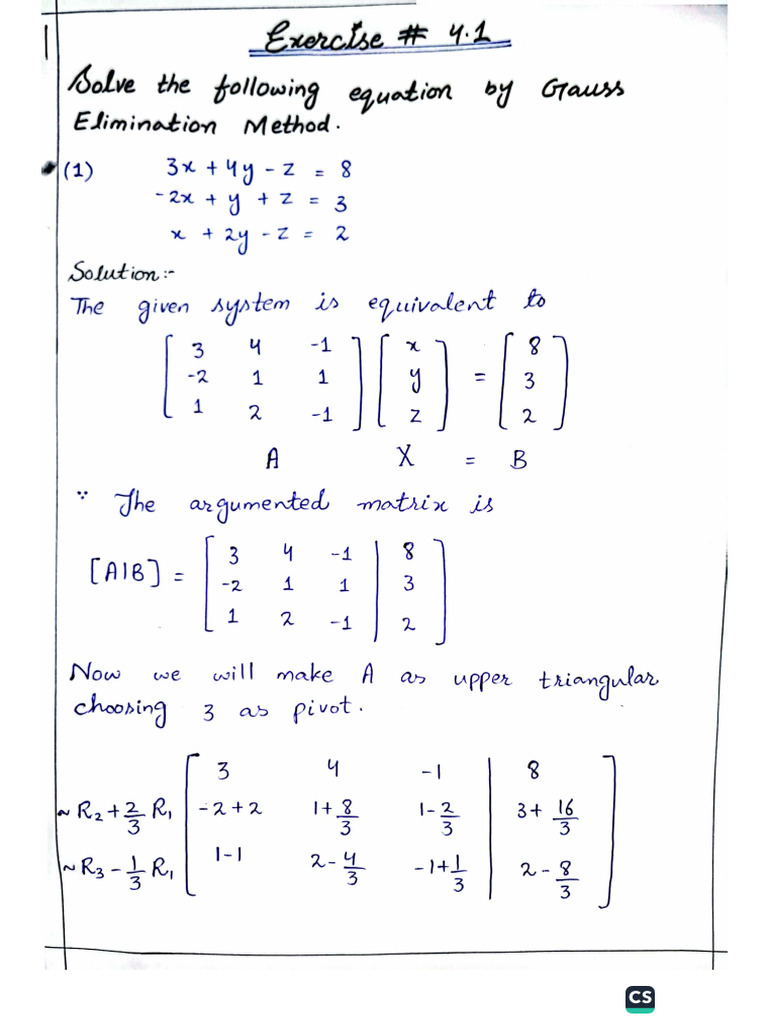 Exercise # 4.1
Solve the following equation by Gauss
Elimination Method.
(1) 3x + 4y - z = 8
-2x + y + z = 3
x + 2y - z = 2
Solution:-
The given system is equivalent to
[ 3 4 -1 ] [ x ] = [ 8 ]
[ -2 1 1 ] [ y ] = [ 3 ]
[ 1 2 -1 ] [ z ] = [ 2 ]
A X = B
∵ The argumented matrix is
[A|B] = [ 3 4 -1 | 8 ]
[ -2 1 1 | 3 ]
[ 1 2 -1 | 2 ]
Now we will make A as upper triangular
choosing 3 as pivot.
[ 3 4 -1 | 8 ]
~ R2 + 2/3 R1 [ -2+2 1+8/3 1-2/3 | 3+ 16/3 ]
~ R3 - 1/3 R1 [ 1-1 2-4/3 -1+1/3 | 2-8/3 ]
CS